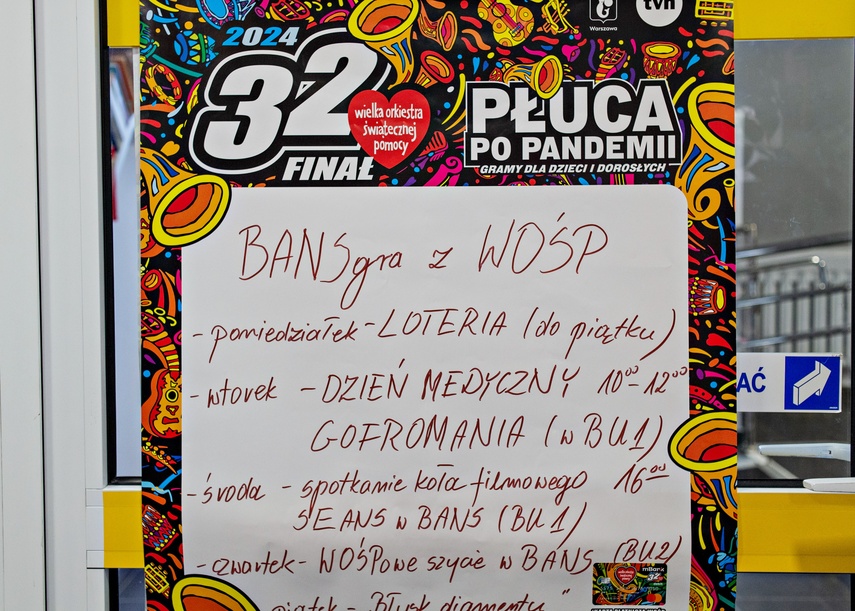 Warszawa
tvn
2024
32
FINAŁ
wielka orkiestra
świątecznej
pomocy
PŁUCA
PO PANDEMII
GRAMY DLA DZIECI I DOROSŁYCH
BANSgra z WOŚP
- poniedziałek - LOTERIA (do piątku)
- wtorek - DZIEŃ MEDYCZNY 10⁰⁰-12⁰⁰
GOFROMANIA (w BU1)
- środa - spotkanie koła filmowego 16⁰⁰
SEANS w BANS (BU1)
- czwartek - WOŚPowe szycie w BANS (BU2)
piątek - "Błysk diamentu"
AĆ
mBank
32